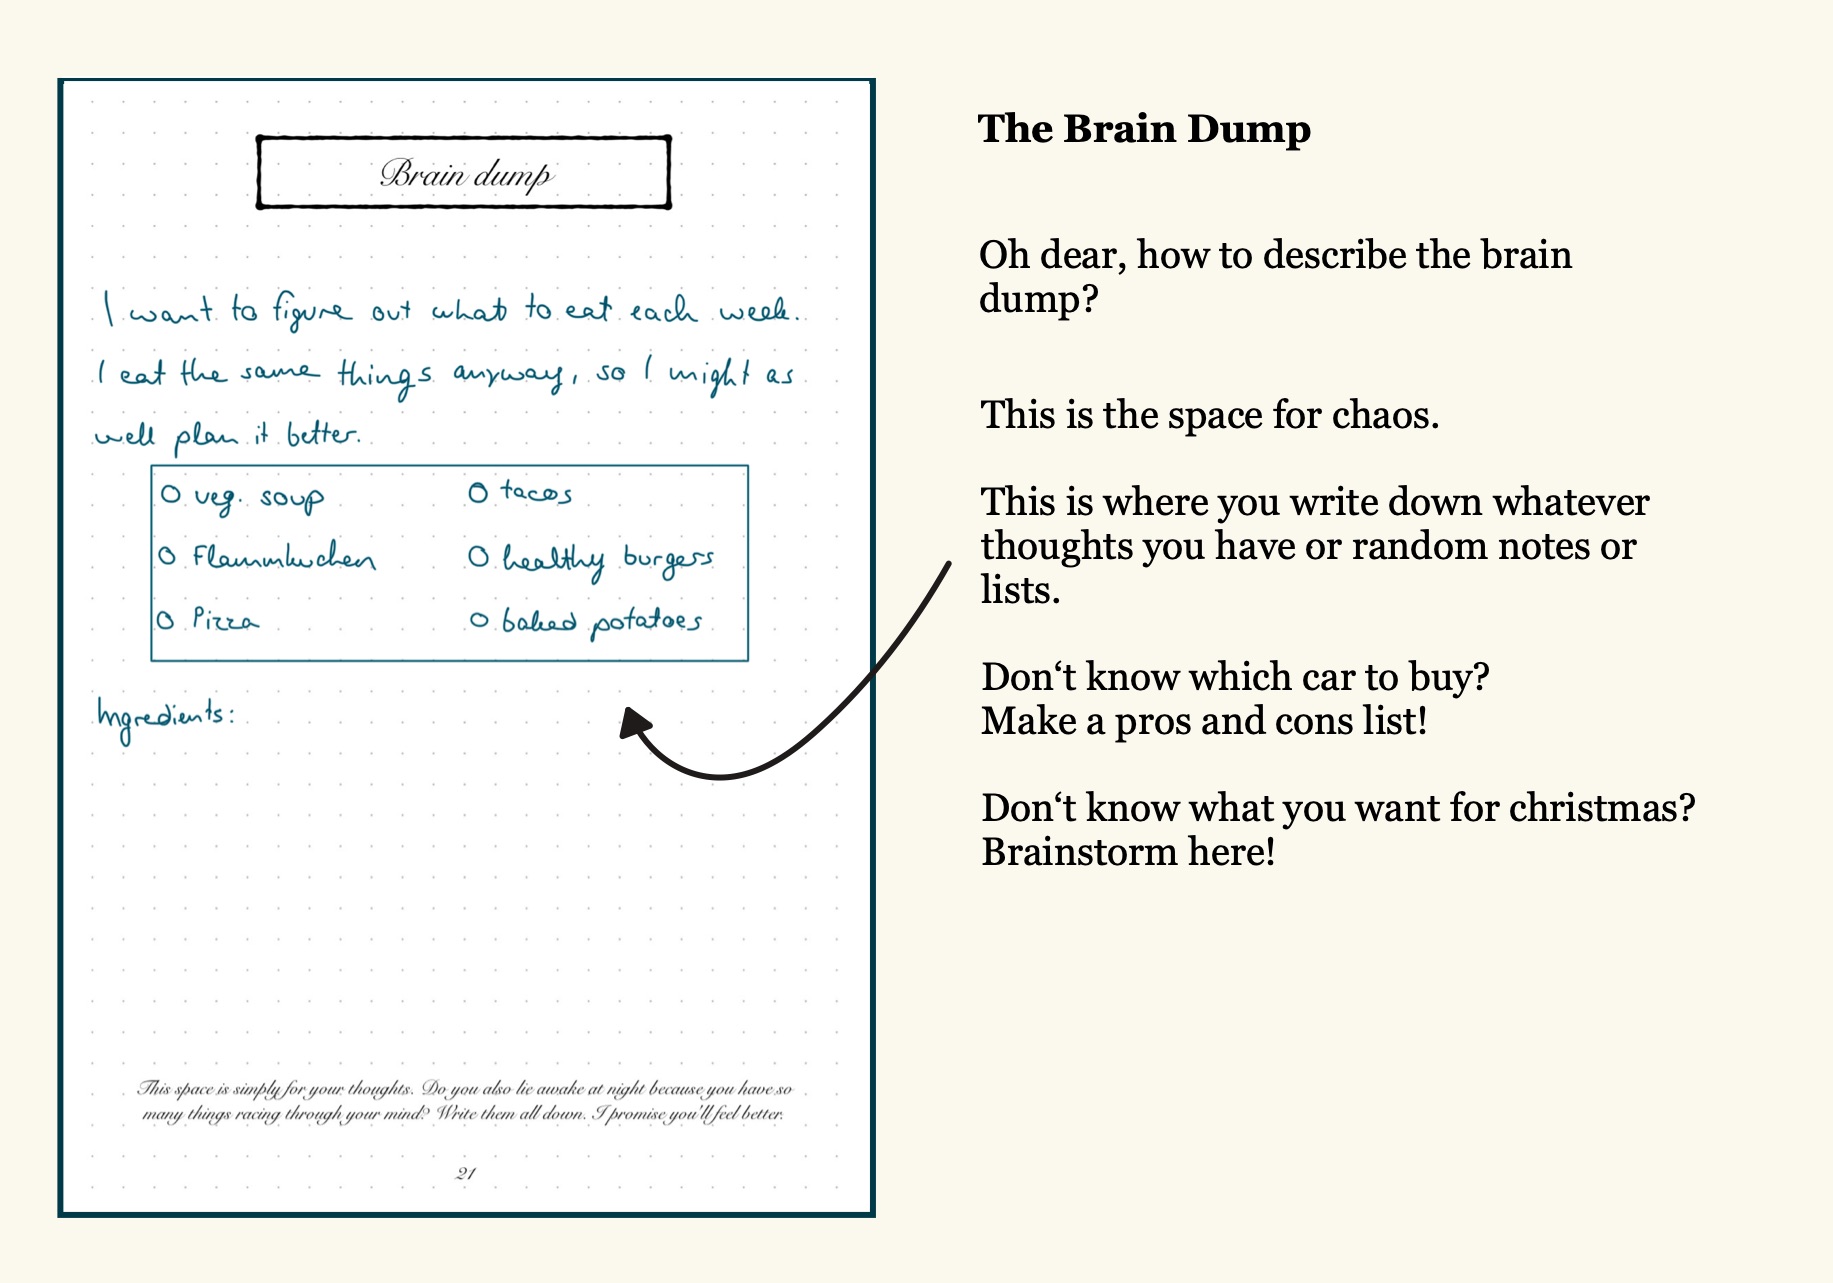 Brain dump
I want to figure out what to eat each week.
I eat the same things anyway, so I might as
well plan it better.
O veg. soup
O tacos
O Flammkuchen
O healthy burgers
O Pizza
O baked potatoes
Ingredients:
This space is simply for your thoughts. Do you also lie awake at night because you have so
many things racing through your mind? Write them all down. I promise you'll feel better.
21
The Brain Dump
Oh dear, how to describe the brain
dump?
This is the space for chaos.
This is where you write down whatever
thoughts you have or random notes or
lists.
Don‘t know which car to buy?
Make a pros and cons list!
Don‘t know what you want for christmas?
Brainstorm here!